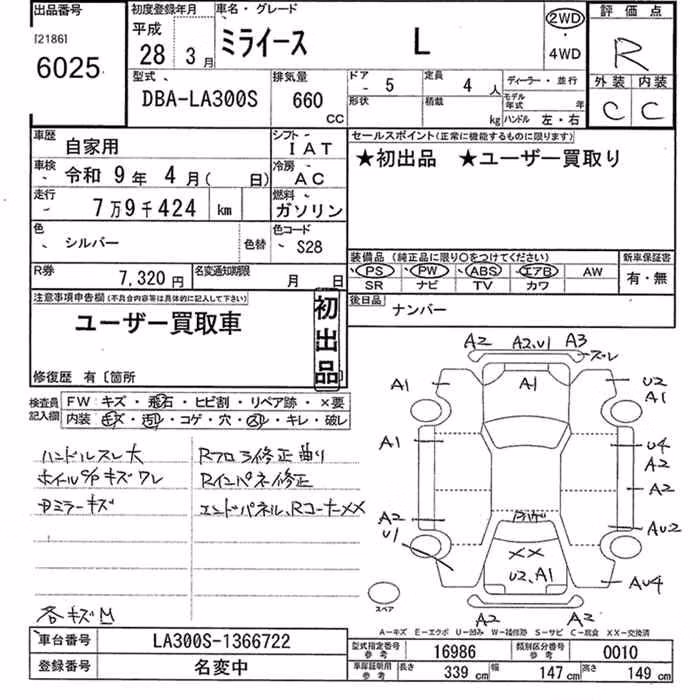 出品番号
[2186]
6025
初度登録年月
平成
28年 3月
車名・グレード
ミライース L
2WD
・
4WD
評価点
R
外装 内装
C C
型式
DBA-LA300S
排気量
660 CC
ドア
5
定員
4人
形状
積載
kg
ディーラー・並行
モデル年式 年
ハンドル 左・右
車歴
自家用
シフト
IAT
車検
令和 9年 4月( 日)
冷房
AC
走行
7万9千424 km
燃料
ガソリン
色
シルバー
色替
色コード
S28
R券
7,320円
名変通知期限
月 日
セールスポイント(正常に機能するものに限ります)
★初出品 ★ユーザー買取り
装備品 (純正品に限り○をつけてください)
PS PW ABS エアB AW
SR ナビ TV カワ
新車保証書
有・無
後日品
ナンバー
注意事項申告欄(不具合内容等は具体的に記入して下さい)
ユーザー買取車
初出品
修復歴 有〔箇所
検査員記入欄
FW キズ・飛石・ヒビ割・リペア跡・×要
内装 キズ・汚れ・コゲ・穴・スレ・キレ・破レ
ハンドルスレ大
ホイルC/Pキズワレ
Pミラーキズ
各キズM
Rフロア修正曲り
Rインパネ修正
エンドパネル、RコーナーXX
A2 A2,U1 A3
ズレ
A1 A1 U2
A1
A1 U4
A2
A2
A2 AU2
U1
XX
U2、A1 AU4
A2 A2
スペア
A-キズ E-エクボ U-凹み W-補修跡 S-サビ C-腐食 XX-交換済
車台番号
LA300S-1366722
登録番号
名変中
型式指定番号
参考
16986
類別区分番号
参考
0010
車庫証明用
参考
長さ 339 cm 幅 147 cm 高さ 149 cm